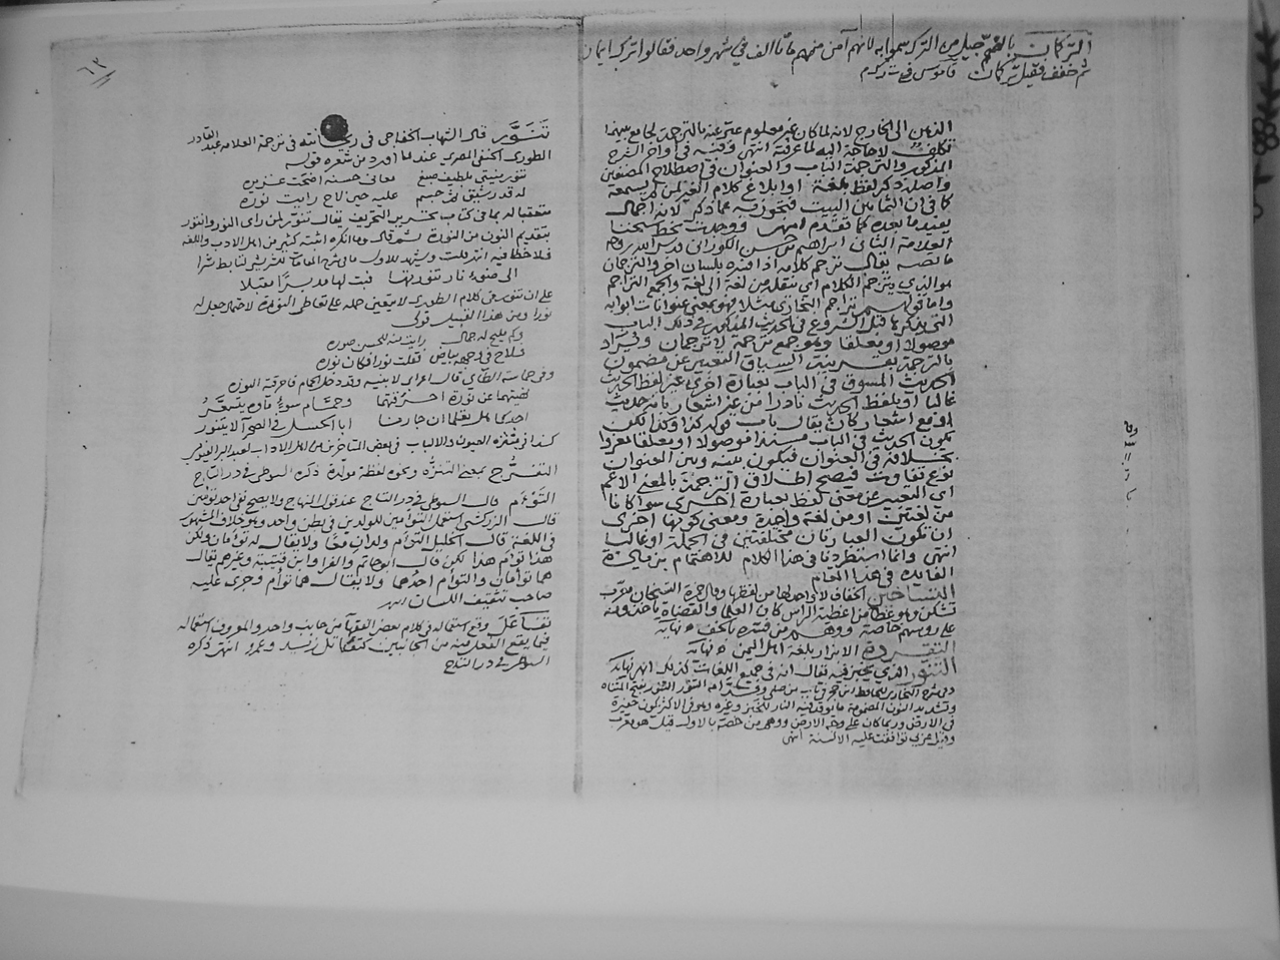 التركمان بالضم جيل من الترك سموا به لانهم آمن منهم مائتا الف في شهر واحد فقالوا ترك ايمان
ثم خفف فقيل تركمان قاموس في ت ر ك م
الذهن الى الخارج لانه لما كان غير معلوم عبر عنه بالترجمة لجامع بينهما
تكلف لا حاجة اليه لما عرفته انتهى وفيه في اواخر الشرح
المذكور والترجمة الباب والعنوان في اصطلاح المصنفين
واصله ذكر لفظ بلغة او ابلاغ كلام الغير لمن لم يسمعه
كما في ان الثمانين البيت فتجوز به عما ذكر لانه اجمال
يفيد ما بعده كما تقدم انتهى ووجدت بخط شيخنا
العلامة الثاني ابراهيم بن حسن الكوراني قدس الله روحه
ما نصه يقال ترجم كلامه اذا فسره بلسان اخر والترجمان
هو الذي يترجم الكلام اي ينقله من لغة الى لغة والجمع التراجم
واما قولهم تراجم البخاري مثلا فهو بمعنى عنوانات ابوابه
التي يذكرها قبل الشروع في الحديث المذكور في ذلك الباب
موصولا او معلقا وهو جمع ترجمة لا ترجمان ويراد
بالترجمة بقرينة السياق التعبير عن مضمون
الحديث المسوق في الباب بعبارة اخرى غير لفظ الحديث
غالبا او بلفظ الحديث نادرا من غير اشعار بانه حديث
او مع اشعار كان يقال باب قوله كذا وكذا لكن
يكون الحديث في الباب مسندا موصولا او معلقا معزوا
بخلافه في العنوان فيكون بينه وبين العنوان
نوع تفاوت فيصح اطلاق الترجمة بالمعنى الاعم
اي التعبير عن معنى لفظ بعبارة اخرى سوا كانا
من لغتين او من لغة واحدة ومعنى كونها اخرى
ان تكون العبارتان مختلفتين في الجملة او غالبا
انتهى وانما استطردنا في هذا الكلام للاهتمام بزيادة
الفايدة في هذا المقام
التساخين الخفاف لا واحد لها من لفظها وقال حمزة التسخان معرب
تشكن وهو غطا من اغطية الراس كان العلما والقضاة ياخذونه
على روسهم خاصة ووهم من فسره بالخف نهاية
الابزار بلغة اهل اليمن نهاية
التنور الذي يخبز فيه يقال انه في جميع اللغات كذلك انتهى نهاية
وفي شرح البخاري للحافظ ابن حجر في باب التنور بفتح المثناة
وتشديد النون المضمومة ما توقد فيه النار للخبز وغيره وهو في الاكثر يكون حفيرة
في الارض وربما كان على وجه الارض ووهم من خصه بالاول قيل هو معرب
وقيل عربي توافقت عليه الالسنة انتهى
٦٣
تنور قال الشهاب الخفاجي في ريحانته في ترجمة العلامة عبد القادر
الطوري الحنفي المصري عندما اورد من شعره قوله
معاني حسنه اضحت غزيره
له قد رشيق جسم عليه حين لاح رايت نوره
متعقبا له بما في كتاب يقال تنور لمن راى النور وانتور
بتقديم النون من النورة ثم قال وما انكره اثبته كثير من اهل الادب واللغة
الى ضوء نار تنورتها فبت لها مدبرا مقبلا
على ان تنور في كلام الطوري لا يتعين حمله على تعاطي النورة لاحتمال جعله له
نورا ومن هذا القبيل قولي
وكم مليح له جمال رايت منه للحسن صوره
فلاح في وجهه بياض فقلت نورا فكان نوره
وفي حماسة الطائي قال اعرابي لابنيه وقد دخلا الحمام فاحرقته النورة
نهيتهما عن نورة احرقتهما وحمام سوء ماؤه يتسعر
اجدكما لم تعلما ان جارنا ابا الحسل في الصحرا لا يتنور
كذا في العيون والالباب في بعض المتاخرين من اهل الاداب لعبد البر الفيومي
التفرج بمعنى التنزه ونحوه لفظة مولدة ذكره السيوطي في در التاج
التوءم قال السيوطي في در التاج عند قول المنهاج ولا يصح توءمين
قال الزركشي استعمل التوامين للولدين في بطن واحد وهو خلاف المشهور
في اللغة قال الخليل التوأم ولدان معا ولا يقال له توأمان ولكن
هذا توأم هذا لكن قال ابو حاتم والفرا وابن قتيبة وغيرهم يقال
هما توأمان والتوأم احدهما ولا يقال هما توأم وجرى عليه
صاحب تثقيف اللسان انتهى
تفاعل وقع استعماله في كلام بعض الفقهاء من جانب واحد والمعروف استعماله
فيما يقع الفعل فيه من الجانبين كتقاتل زيد وعمرو انتهى ذكره
السيوطي في در التاج